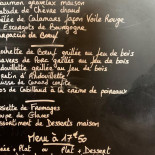 Saumon gravlax maison
Salade de Chèvre chaud
Salade de Calamars Façon Voile Rouge
Escargots de Bourgogne
Carpaccio de Bœuf
Brochette de Bœuf grillée au feu de bois
Travers de Porc grillés au feu de bois
Andouillette grillée au feu de bois
Gratin d'Andouillette
Dos de Cabillaud à la crème de poivrons
Assiette de Fromages
Coupe de Glaces
Assortiment de Desserts maison
Menu à 17€50
+ Plat ou Plat + Dessert